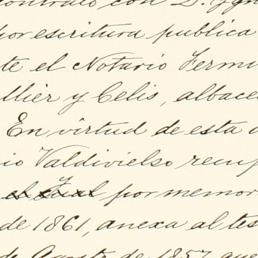 contrato con D. Ygn
por escritura publica
te el Notario Fermi
llier y Celis, albace
En virtud de esta
io Valdivielso recup
por memor
de 1861, anexa al tes
de Agosto de 1857 que